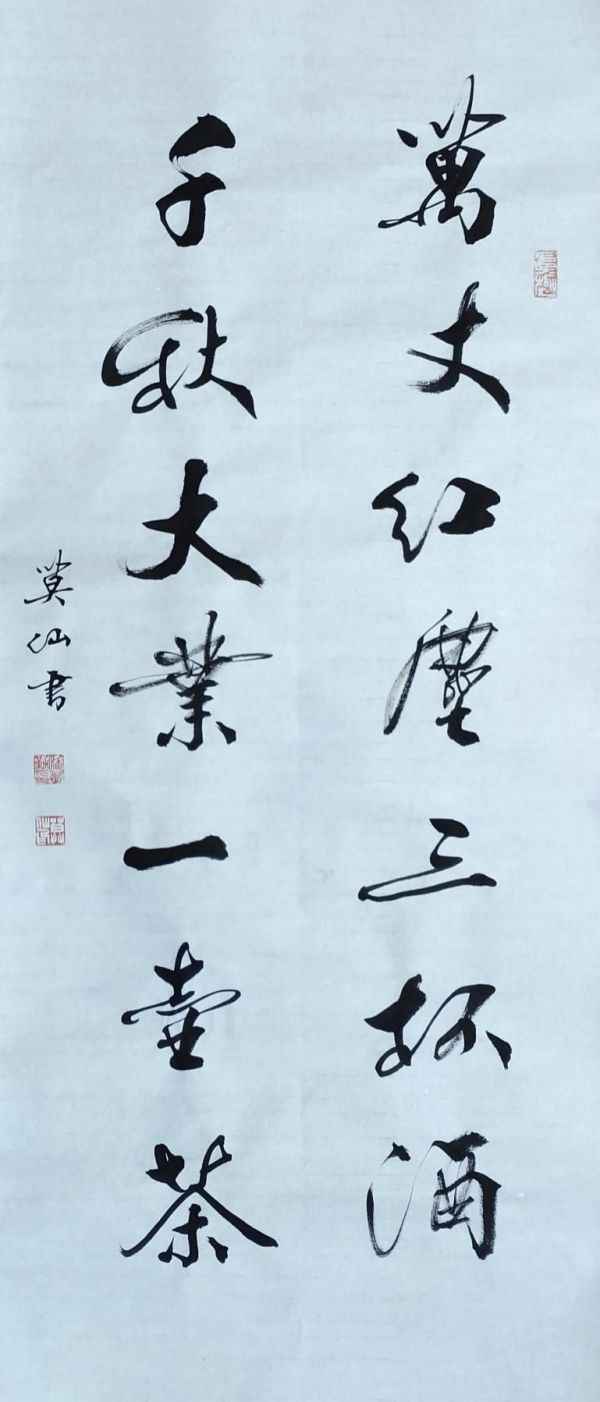 萬丈红塵三杯酒
千秋大業一壺茶
莫仙書